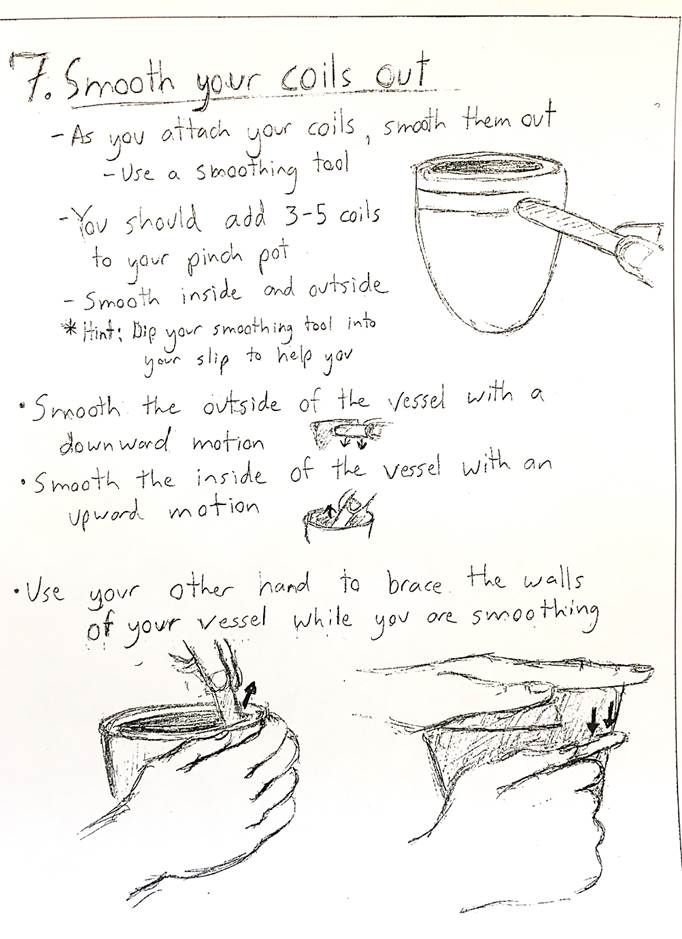 7. Smooth your coils out
- As you attach your coils, smooth them out
- Use a smoothing tool
- You should add 3-5 coils
to your pinch pot
- Smooth inside and outside
* Hint: Dip your smoothing tool into
your slip to help you
• Smooth the outside of the vessel with a
downward motion
• Smooth the inside of the vessel with an
upward motion
• Use your other hand to brace the walls
of your vessel while you are smoothing